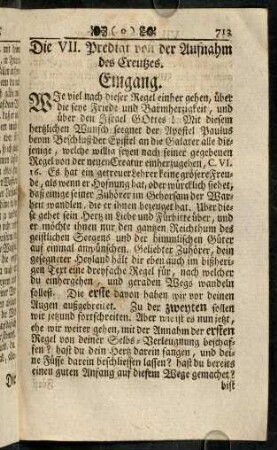 ( o ) 713
Die VII. Predigt von der Aufnahm
des Creutzes.
Eingang.
WJe viel nach dieser Regel einher gehen, über
die seye Friede und Barmhertzigkeit, und
über den Jsrael GOttes! Mit diesem
hertzlichen Wunsch seegnet der Apostel Paulus
beym Beschluß der Epistel an die Galater alle die-
jenige, welche willens seyen nach seiner gegebenen
Regel von der neuen Creatur einherzugehen, C. VI.
16. Es hat ein getreuer Lehrer keine grösere Freu-
de, als wenn er Hofnung hat, oder würcklich siehet,
daß einige seiner Zuhörer im Gehorsam der War-
heit wandlen, die er ihnen bezeuget hat. Uber die-
se gehet sein Hertz in Liebe und Fürbitte über, und
er möchte ihnen nur den gantzen Reichthum des
geistlichen Seegens und der himmlischen Güter
auf einmal anwünschen. Geliebter Zuhörer, dein
gesegneter Heyland hält dir eben auch im bißheri-
gen Text eine dreyfache Regel für, nach welcher
du einhergehen, und geraden Wegs wandeln
sollest. Die erste davon haben wir vor deinen
Augen außgebreitet. Zu der zweyten sollen
wir jetzund fortschreiten. Aber wie ist es nun jetzt,
ehe wir weiter gehen, mit der Annahm der ersten
Regel von deiner Selbs-Verleugnung beschaf-
fen? hast du dein Hertz darein fangen, und dei-
ne Füsse darein beschliessen lassen? hast du bereits
einen guten Anfang auf diesem Wege gemachet?
bist